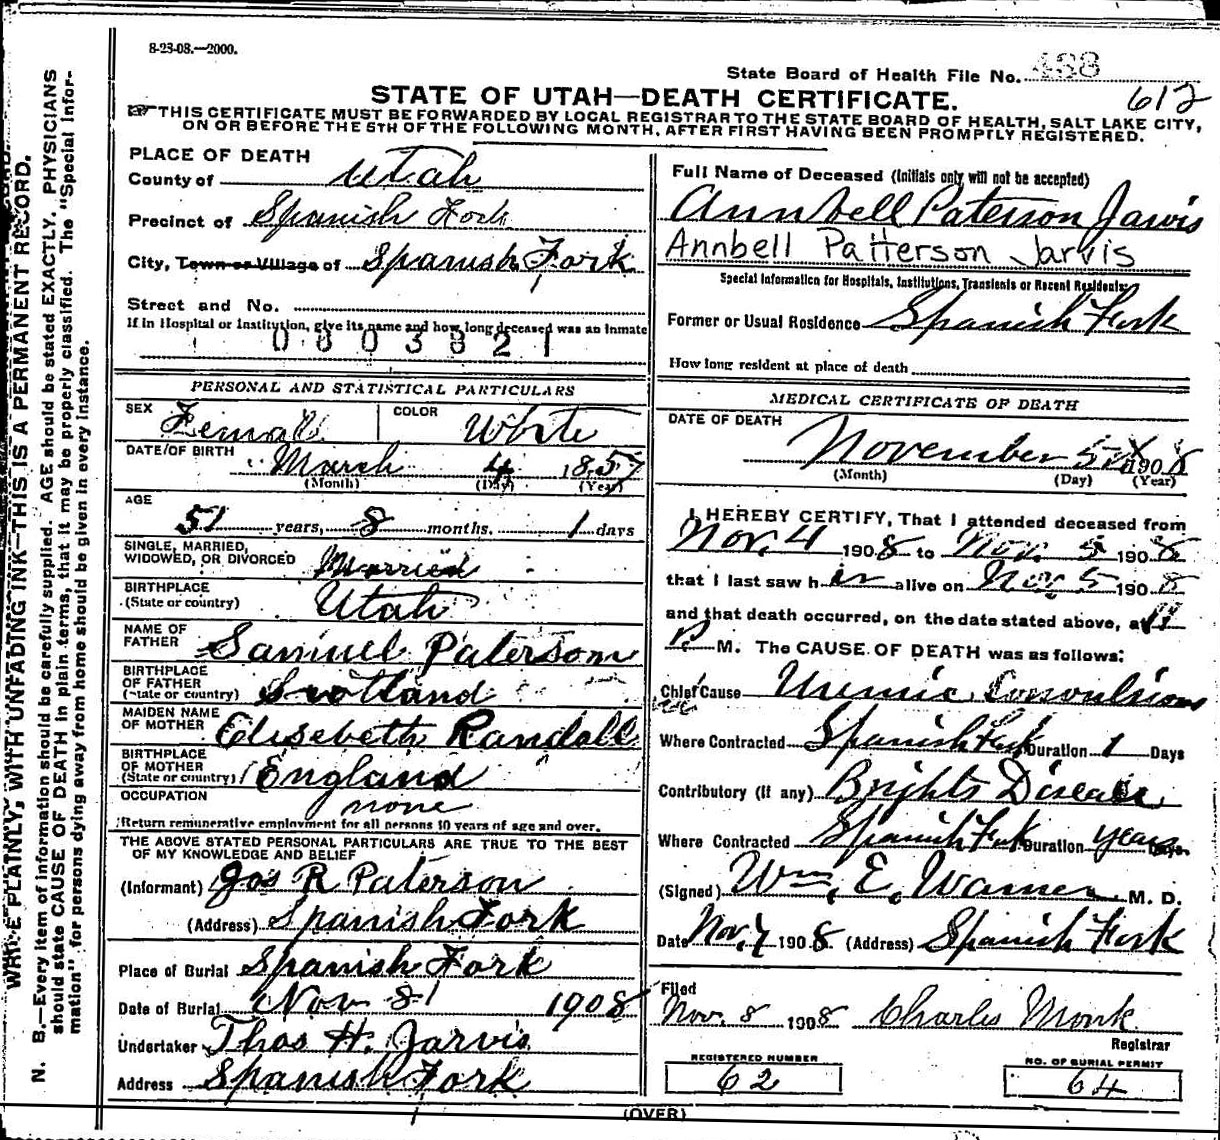 8-23-08.—2000.
State Board of Health File No. 438
612
STATE OF UTAH—DEATH CERTIFICATE.
THIS CERTIFICATE MUST BE FORWARDED BY LOCAL REGISTRAR TO THE STATE BOARD OF HEALTH, SALT LAKE CITY,
ON OR BEFORE THE 5TH OF THE FOLLOWING MONTH, AFTER FIRST HAVING BEEN PROMPTLY REGISTERED.
PLACE OF DEATH
County of Utah
Precinct of Spanish Fork
City, Town or Village of Spanish Fork
Street and No.
If in Hospital or Institution, give its name and how long deceased was an inmate
0803821
PERSONAL AND STATISTICAL PARTICULARS
SEX Female COLOR White
DATE OF BIRTH March 4 1857
(Month) (Day) (Year)
AGE
51 years, 8 months. 1 days
SINGLE, MARRIED,
WIDOWED, OR DIVORCED Married
BIRTHPLACE
(State or country) Utah
NAME OF
FATHER Samuel Paterson
BIRTHPLACE
OF FATHER
(State or country) Scotland
MAIDEN NAME
OF MOTHER Elisebeth Randall
BIRTHPLACE
OF MOTHER
(State or country) England
OCCUPATION none
Return remunerative employment for all persons 10 years of age and over.
THE ABOVE STATED PERSONAL PARTICULARS ARE TRUE TO THE BEST
OF MY KNOWLEDGE AND BELIEF
(Informant) Jos R Paterson
(Address) Spanish Fork
Place of Burial Spanish Fork
Date of Burial Nov 8 1908
Undertaker Thos H. Jarvis
Address Spanish Fork
Full Name of Deceased (Initials only will not be accepted)
Annbell Paterson Jarvis
Annbell Patterson Jarvis
Special Information for Hospitals, Institutions, Transients or Recent Residents:
Former or Usual Residence Spanish Fork
How long resident at place of death
MEDICAL CERTIFICATE OF DEATH
DATE OF DEATH
November 5 1908
(Month) (Day) (Year)
I HEREBY CERTIFY, That I attended deceased from
Nov. 4 1908 to Nov. 5 1908
that I last saw her alive on Nov 5 1908
and that death occurred, on the date stated above, at 11
P. M. The CAUSE OF DEATH was as follows:
Chief Cause Uremic Convulsions
Where Contracted Spanish Fork Duration 1 Days
Contributory (if any) Brights Disease
Where Contracted Spanish Fork Duration years Days
(Signed) Wm. E. Warner M. D.
Date Nov. 7 1908 (Address) Spanish Fork
Filed
Nov. 8 1908 Charles Monk
Registrar
REGISTERED NUMBER
62
NO. OF BURIAL PERMIT
64
(OVER)
WRITE PLAINLY, WITH UNFADING INK—THIS IS A PERMANENT RECORD.
N. B.—Every item of information should be carefully supplied. AGE should be stated EXACTLY. PHYSICIANS
should state CAUSE OF DEATH in plain terms, that it may be properly classified. The "Special Infor-
mation" for persons dying away from home should be given in every instance.